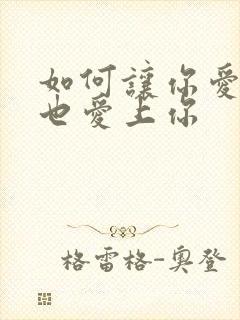 如何讓你愛
也愛上你
格雷格-奧登